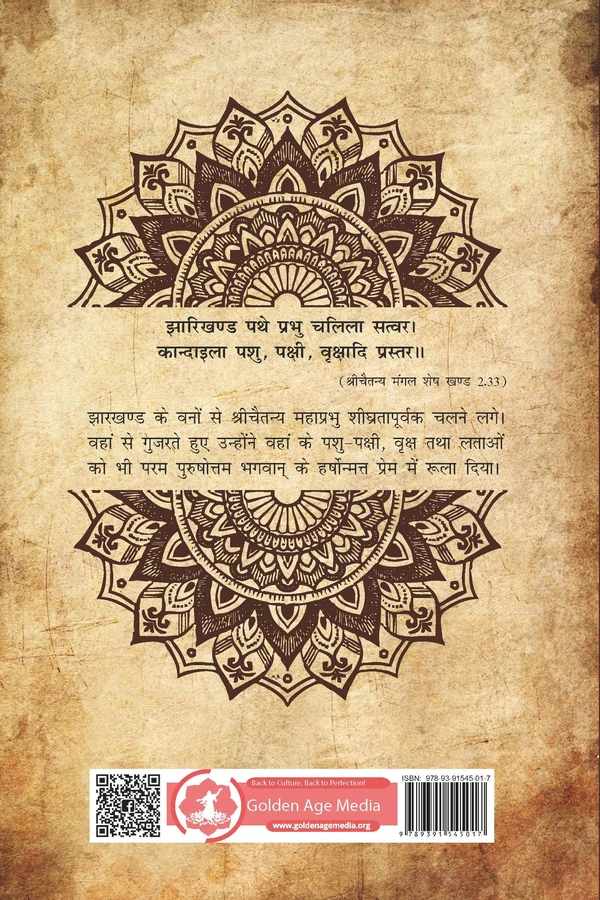 झारिखण्ड पथे प्रभु चलिला सत्वर।
कान्दाइला पशु, पक्षी, वृक्षादि प्रस्तर॥
(श्रीचैतन्य मंगल शेष खण्ड 2.33)
झारखण्ड के वनों से श्रीचैतन्य महाप्रभु शीघ्रतापूर्वक चलने लगे।
वहां से गुजरते हुए उन्होंने वहां के पशु-पक्षी, वृक्ष तथा लताओं
को भी परम पुरुषोत्तम भगवान् के हर्षोन्मत्त प्रेम में रूला दिया।
Back to Culture, Back to Perfection!
Golden Age Media
www.goldenagemedia.org
ISBN: 978-93-91545-01-7
9 789391 545017